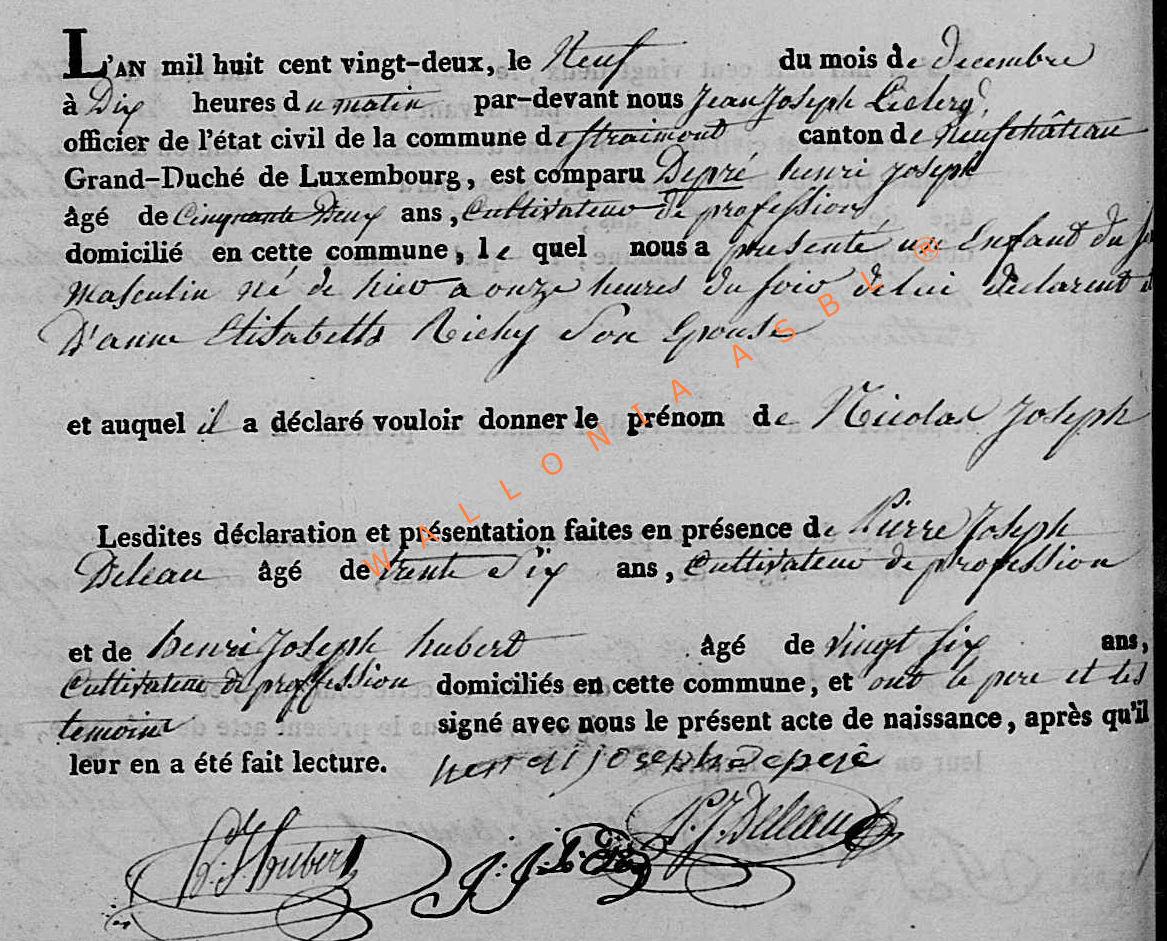 L'AN mil huit cent vingt-deux, le Neuf du mois de decembre
à Dix heures du matin par-devant nous Jean Joseph Leclerq
officier de l'état civil de la commune de straimont canton de Neufchâteau
Grand-Duché de Luxembourg, est comparu Depré henri Joseph
âgé de Cinquante Deux ans, Cultivateur de profession
domicilié en cette commune, le quel nous a presenté un Enfant du
Masculin né de hier a onze heures du soir de lui declarent
D'anne Elisabeth Richy Son Epouse
et auquel il a déclaré vouloir donner le prénom de Nicolas Joseph
Lesdites déclaration et présentation faites en présence de Pierre Joseph
Deleau âgé de trente Six ans, Cultivateur de profession
et de henri Joseph hubert âgé de vingt six ans,
Cultivateur de proffession domiciliés en cette commune, et ont le pere et les
temoins signé avec nous le présent acte de naissance, après qu'il
leur en a été fait lecture. henri joseph depré
P.J. Deleau
h.J. hubert
WALLONIA ASBL ®